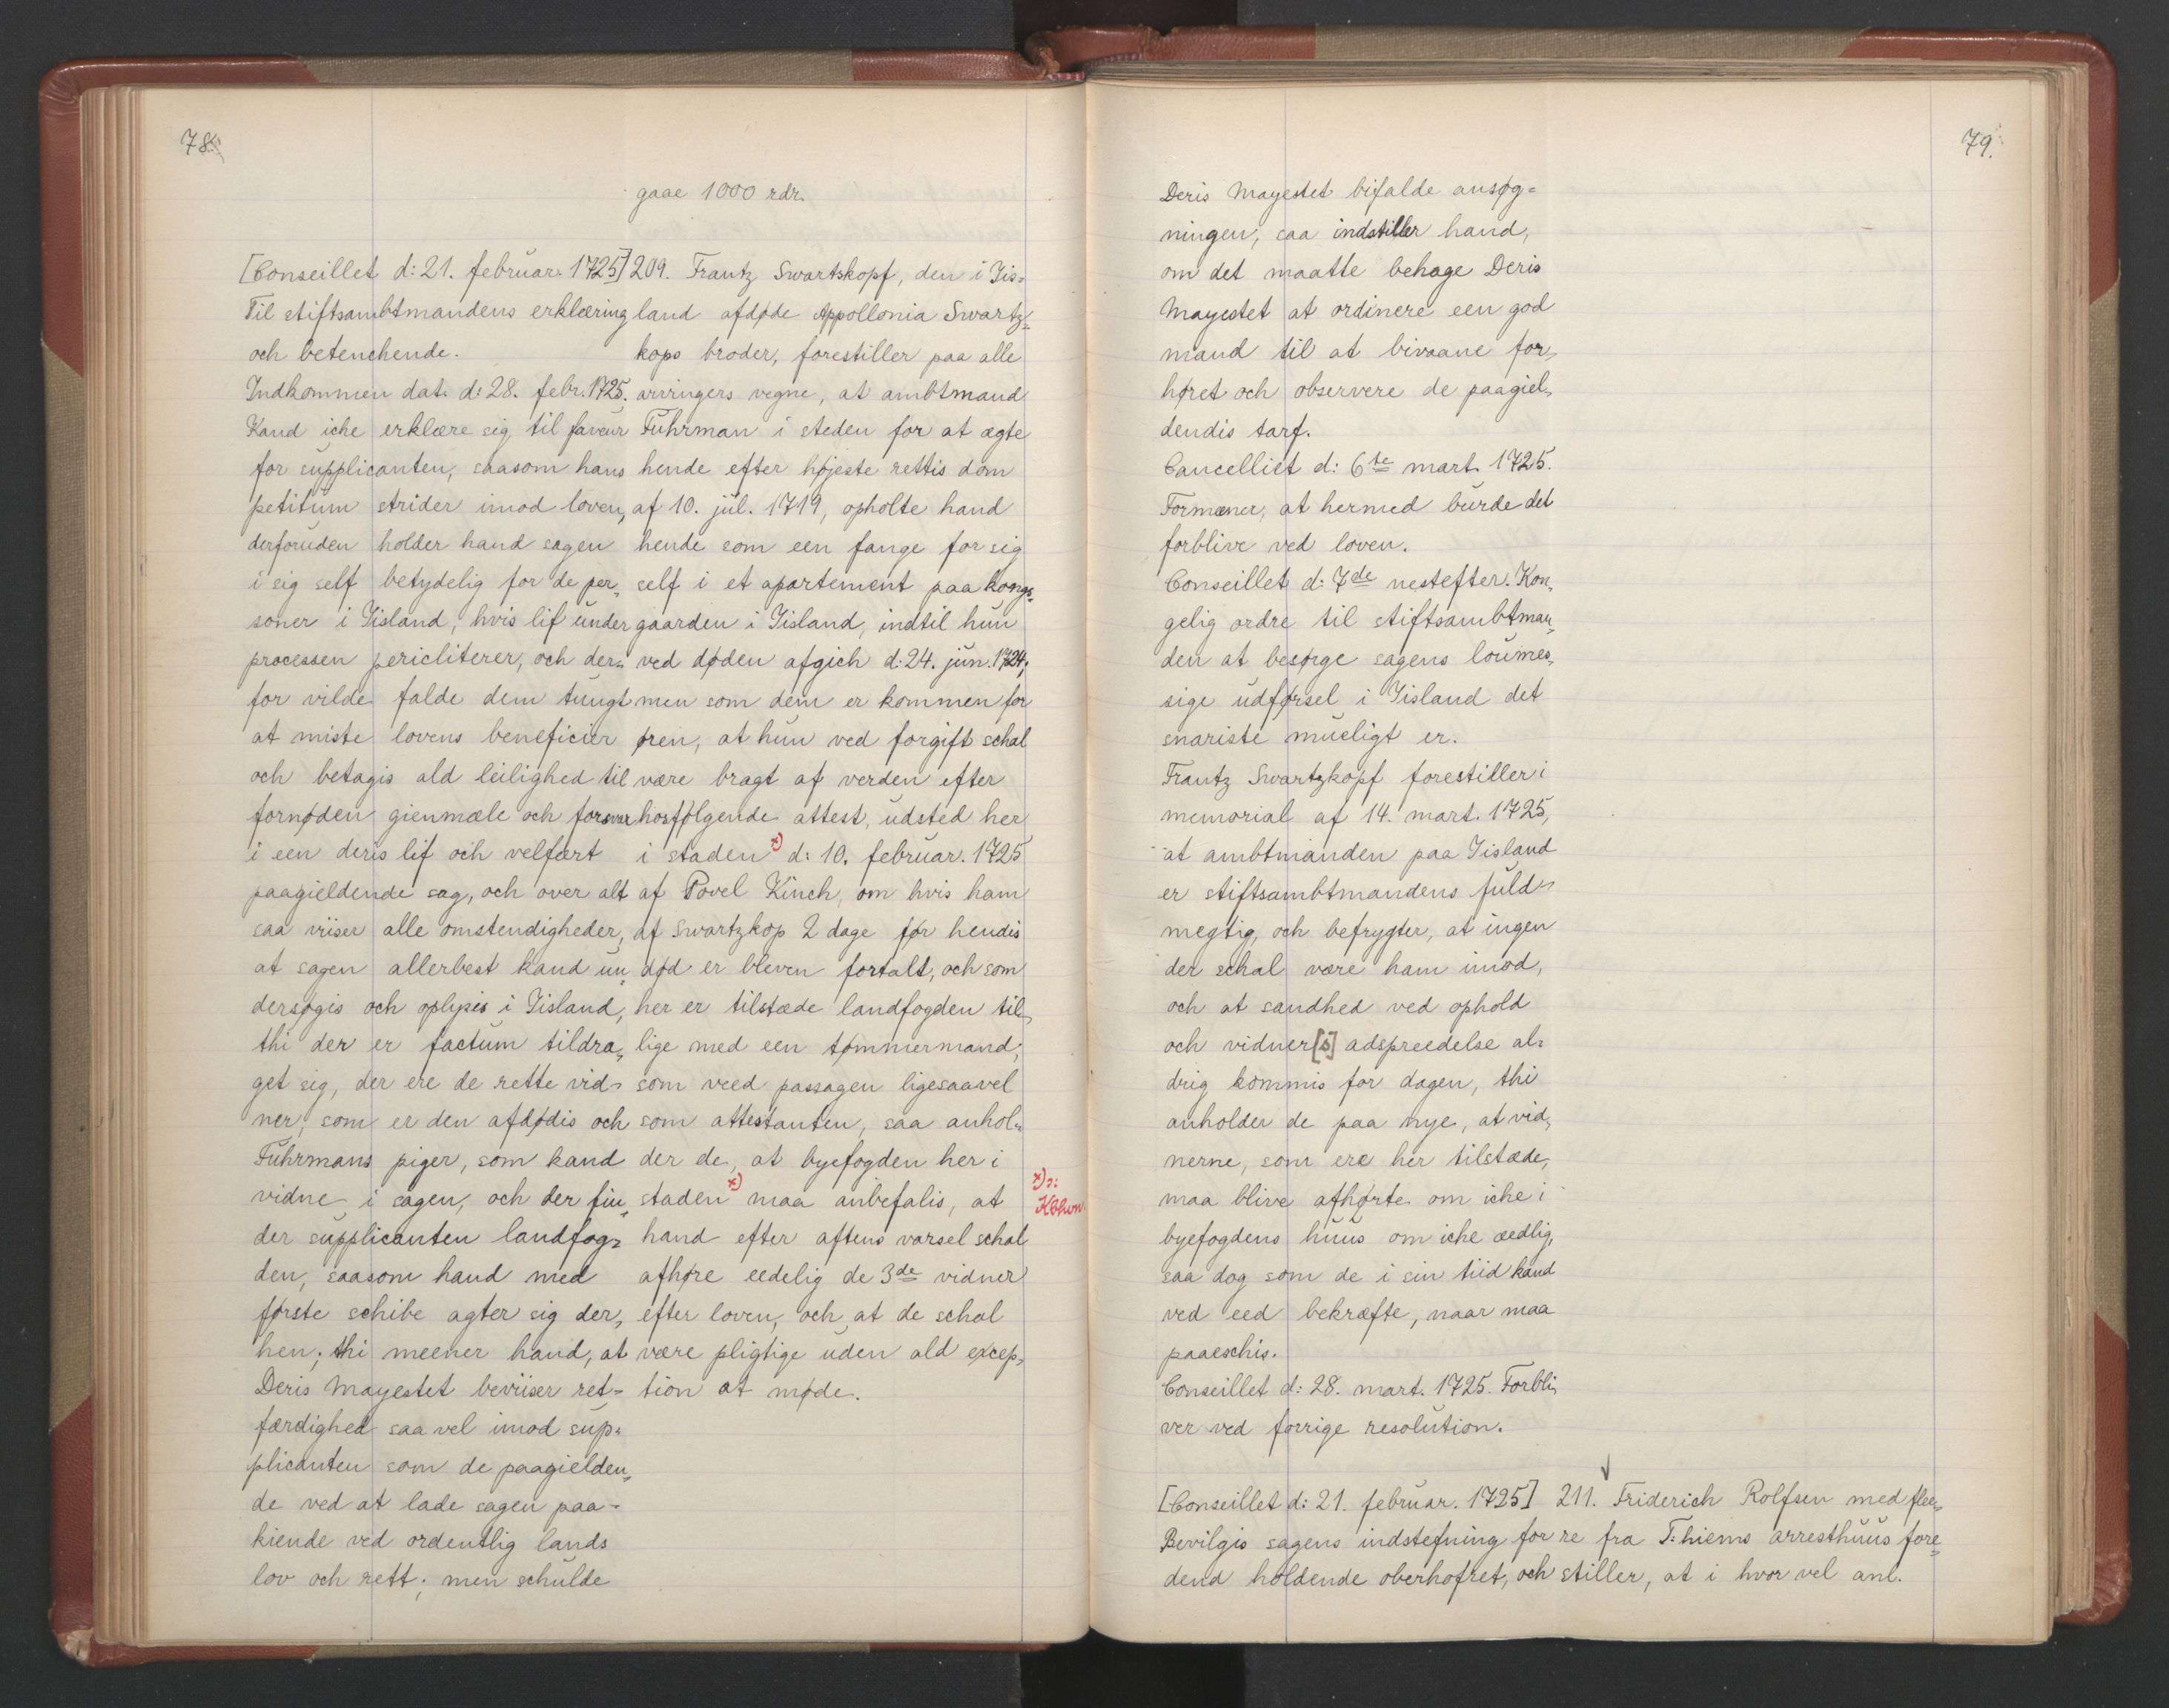 78.
gaae 1000 rdr.
[Conseillet d: 21. februar. 1725]
Til stiftsambtmandens erklæring
och betenchende.
Indkommen dat. d: 28. febr. 1725.
Kand iche erklære sig til faveur
for supplicanten, saasom hans
petitum strider imod loven,
derforuden holder hand sagen
i sig self betydelig for de per„
soner i Iisland, hvis lif under
processen pericliterer, och der„
for vilde falde dem tungt
at miste lovens beneficier
och betagis ald leilighed til
fornøden gienmæle och forsvar
i een deris lif och velfært
paagieldende sag, och over alt
saa viiser alle omstendigheder,
at sagen allerbest kand un„
dersøgis och oplysis i Iisland,
thi der er factum tildra„
get sig, der ere de rette vid„
ner, som er den afdødis och
Fuhrmans piger, som kand
vidne i sagen, och der fin„
der supplicanten landfog„
den, saasom hand med
første schibe agter sig der„
hen; thi meener hand, at
Deris Mayestet beviiser ret=
færdighed saa vel imod sup„
plicanten som de paagielden„
de ved at lade sagen paa=
kiende ved ordentlig lands
lov och rett; men schulde
209. Frantz Swartskopf, den i Iis„
land afdøde Appollonia Swartz„
kops broder, forestiller paa alle
arvingers vegne, at ambtmand
Fuhrman i steden for at ægte
hende efter højeste rettis dom
af 10. jul. 1719, opholte hand
hende som een fange for sig
self i et apartement paa kongs„
gaarden i Iisland, indtil hun
ved døden afgich d: 24. jun. 1724;
men som dem er kommen for
øren, at hun ved forgift schal
være bragt af verden efter
hosfølgende attest, udsted her
i staden x) d: 10. februar. 1725
af Povel Kinch, om hvis ham
af Swartzkop 2 dage før hendis
død er bleven fortalt, och som
her er tilstæde landfogden til„
lige med een tømmermand,
som veed passagen ligesaavel
som attestanten, saa anhol„
der de, at byefogden her i
staden x) maa anbefalis, at
hand efter aftens varsel schal
afhøre eedelig de 3de vidner
efter loven, och at de schal
være pligtige uden ald excep„
tion at møde.
x) ɔ:
Kbhvn.
79.
Deris Mayestet bifalde ansøg=
ningen, saa indstiller hand,
om det maatte behage Deris
Mayestet at ordinere een god
mand til at bivaane for„
høret och observere de paagiel„
dendis tarf.
Cancelliet d: 6te mart. 1725.
Formæner, at hermed burde det
forblive ved loven.
Conseillet d: 7de nestefter. Kon„
gelig ordre til stiftsambtman„
den at besørge sagens loumes„
sige udførsel i Iisland det
snariste mueligt er.
Frantz Swartzkopf forestiller i
memorial af 14. mart. 1725,
at ambtmanden paa Iisland
er stiftsambtmandens fuld„
megtig, och befrygter, at ingen
der schal være ham imod,
och at sandhed ved ophold
och vidner[s] adspreedelse al„
drig kommis for dagen, thi
anholder de paa nye, at vid„
nerne, som ere her tilstæde,
maa blive afhørte om iche i
byefogdens huus om iche æedlig,
saa dog som de i sin tiid kand
ved eed bekræfte, naar maa
paaeschis.
Conseillet d: 28. mart. 1725. Forbli„
ver ved forrige resolution.
[Conseillet d: 21. februar. 1725]
Bevilgis sagens indstefning for
dend holdende oberhofret, och
211. Friderich Rolfsen med flee„
re fra T:hiems arresthuus fore„
stiller, at i hvor vel anl.